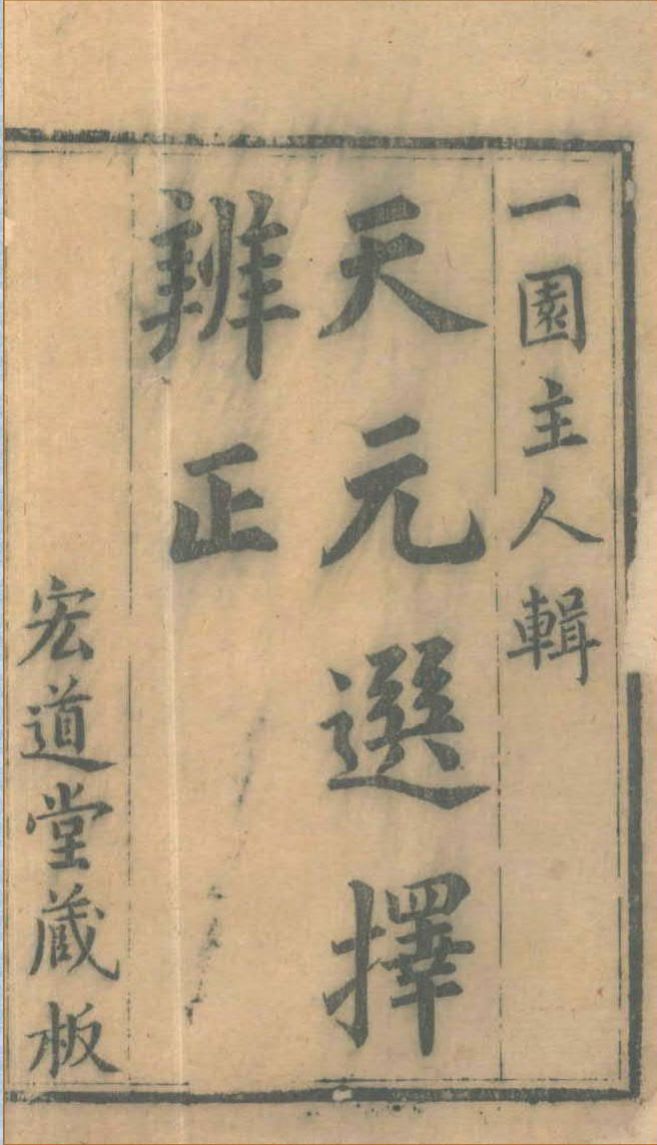 一園主人輯
天元選擇
辨正
宏道堂藏板